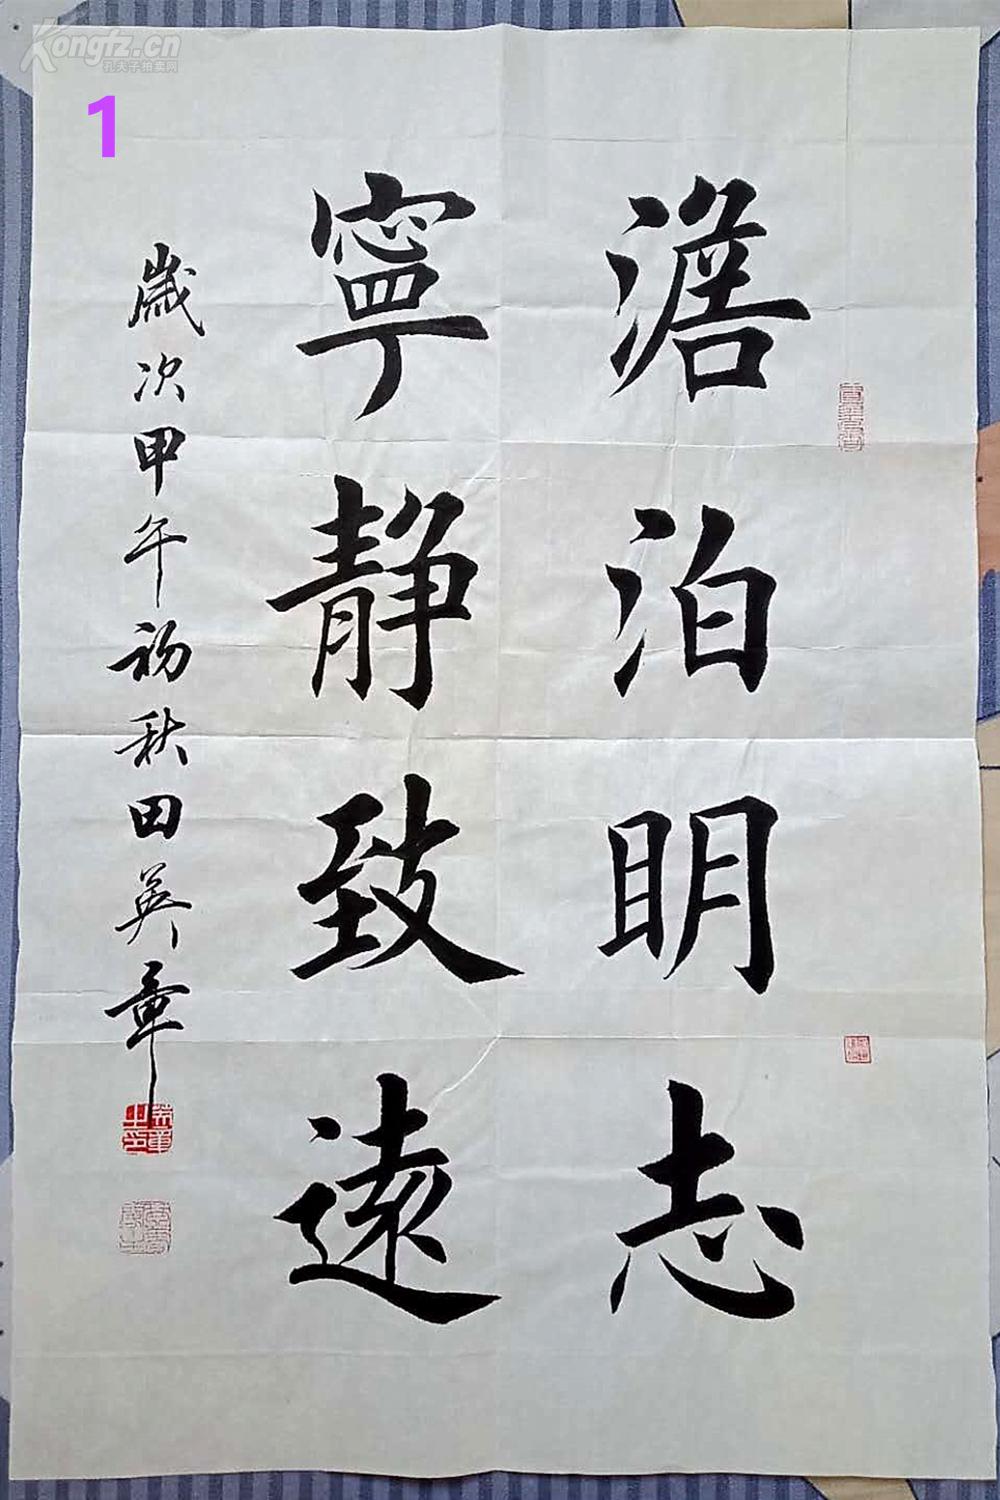 Kongfz.cn
孔夫子拍卖网
1
澹泊明志
寧静致遠
歲次甲午初秋田英章